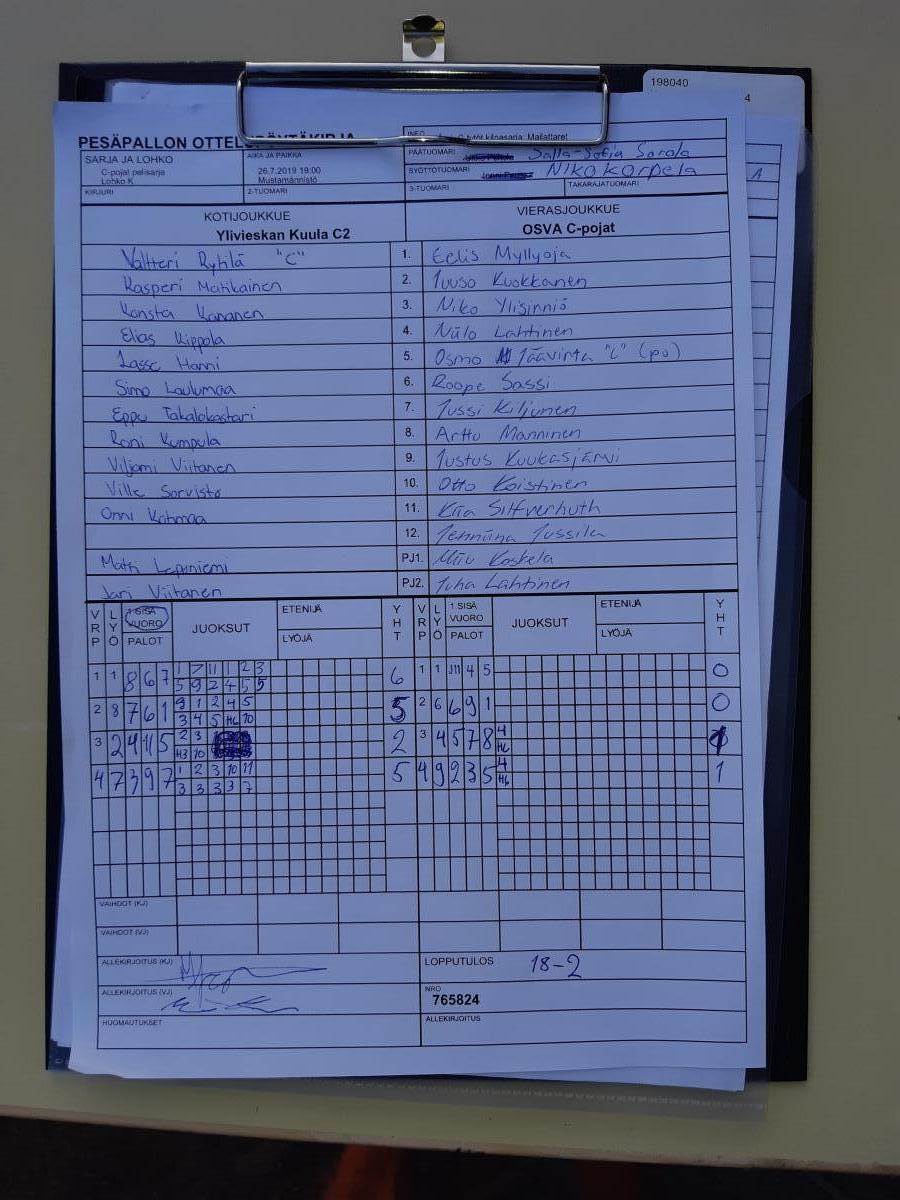 198040
4
PESÄPALLON OTTELUPÖYTÄKIRJA
INFO
SARJA JA LOHKO
C-pojat pelisarja
Lohko K
AIKA JA PAIKKA
26.7.2019 19:00
Mustamännistö
PÄÄTUOMARI Salla-Sofia Sorola
SYÖTTÖTUOMARI Niko Karpela
KIRJURI
2-TUOMARI
3-TUOMARI
TAKARAJATUOMARI
A
KOTIJOUKKUE
Ylivieskan Kuula C2
VIERASJOUKKUE
OSVA C-pojat
Valtteri Rytilä "C" 1. Eelis Myllyoja
Kasperi Matikainen 2. Tuuso Kuokkanen
Konsta Kananen 3. Niko Ylisinniö
Elias Kippola 4. Niilo Lahtinen
Lasse Hanni 5. Osmo Jäävirta "C" (po)
Simo Laulumaa 6. Roope Sassi
Eppu Takalokastari 7. Jussi Kiljunen
Roni Kumpula 8. Arttu Manninen
Viljami Viitanen 9. Justus Kuukasjärvi
Ville Sorvisto 10. Otto Koistinen
Onni Kotimaa 11. Kiia Silfverhuth
12. Jenniina Jussila
Matti Leppiniemi PJ1. Miiu Koskela
Jari Viitanen PJ2. Juha Lahtinen
VRP LYÖ 1.SISÄ VUORO PALOT JUOKSUT ETENIJÄ LYÖJÄ YHT VRP LYÖ 1.SISÄ VUORO PALOT JUOKSUT ETENIJÄ LYÖJÄ YHT
1 1 8 6 7 1 7 11 1 2 3 6 1 1 4 5 0
5 9 2 4 5 5
2 8 7 6 1 9 1 2 4 5 5 2 6 6 9 1 0
3 4 5 H6 10
3 2 4 11 5 2 3 2 3 4 5 7 8 4
H3 10 H6
4 7 3 9 7 1 2 3 10 11 5 4 9 2 3 5 4 1
3 3 3 3 7 H6
VAIHDOT (KJ)
VAIHDOT (VJ)
ALLEKIRJOITUS (KJ)
LOPPUTULOS 18-2
ALLEKIRJOITUS (VJ)
NRO
765824
HUOMAUTUKSET
ALLEKIRJOITUS